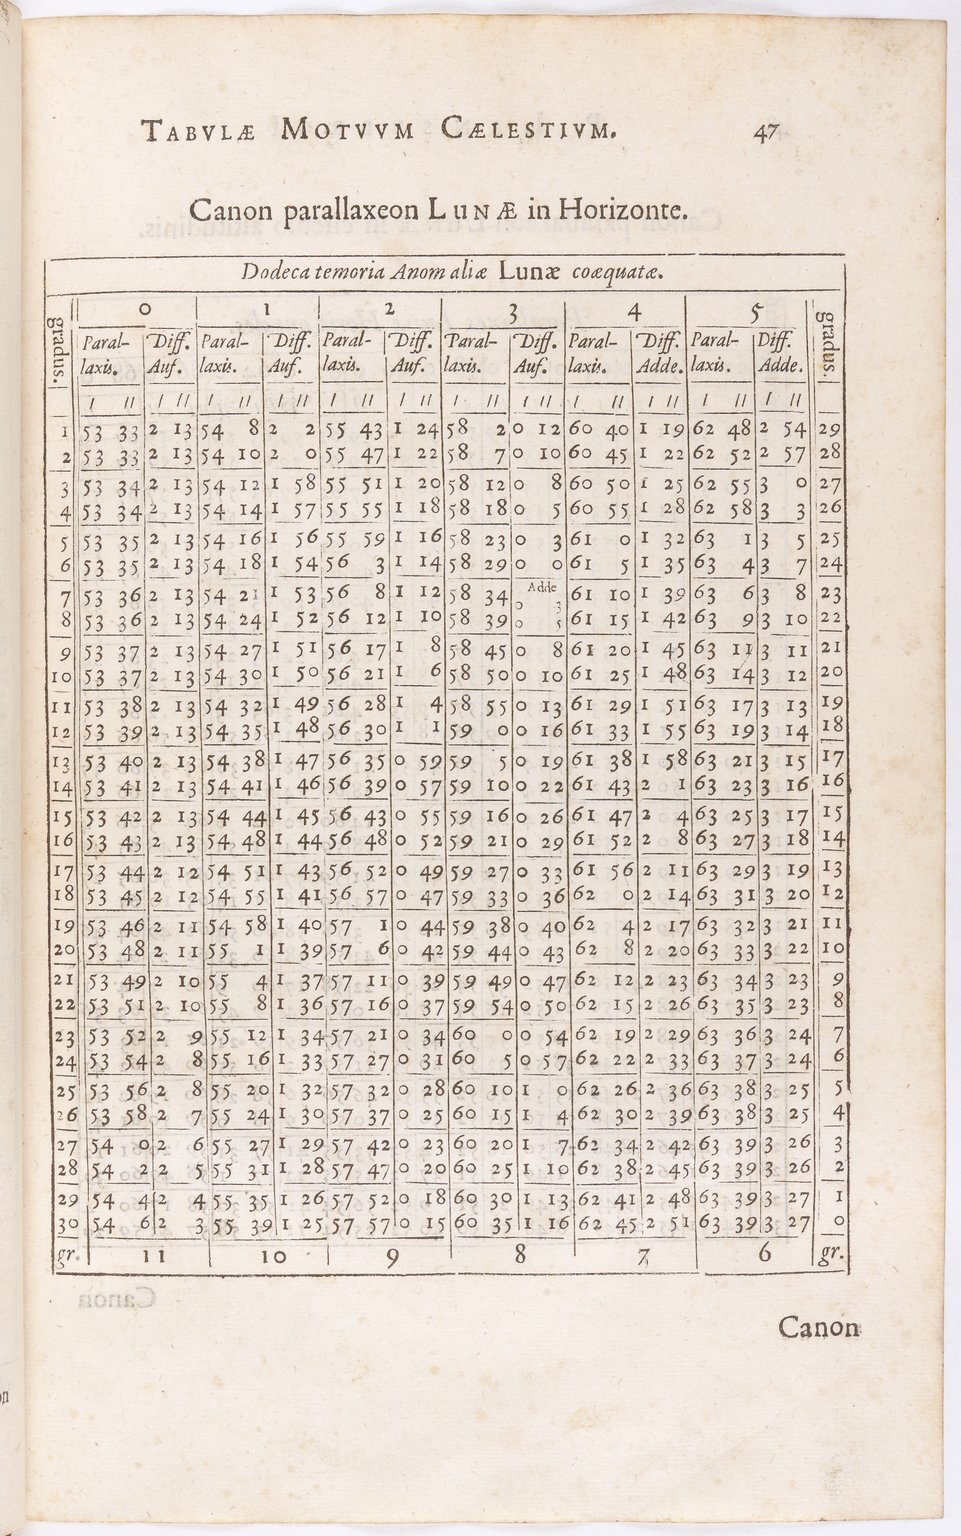 TABVLÆ MOTVVM CÆLESTIVM. 47
Canon parallaxeon LUNÆ in Horizonte.
Dodecatemoria Anomaliæ Lunæ coæquatæ.
gradus. 0 1 2 3 4 5 gradus.
Paral- Diff. Paral- Diff. Paral- Diff. Paral- Diff. Paral- Diff. Paral- Diff.
laxis. Auf. laxis. Auf. laxis. Auf. laxis. Auf. laxis. Adde. laxis. Adde.
I II I II I II I II I II I II I II I II I II I II I II I II
1 53 33 2 13 54 8 2 2 55 43 1 24 58 2 0 12 60 40 1 19 62 48 2 54 29
2 53 33 2 13 54 10 2 0 55 47 1 22 58 7 0 10 60 45 1 22 62 52 2 57 28
3 53 34 2 13 54 12 1 58 55 51 1 20 58 12 0 8 60 50 1 25 62 55 3 0 27
4 53 34 2 13 54 14 1 57 55 55 1 18 58 18 0 5 60 55 1 28 62 58 3 3 26
5 53 35 2 13 54 16 1 56 55 59 1 16 58 23 0 3 61 0 1 32 63 1 3 5 25
6 53 35 2 13 54 18 1 54 56 3 1 14 58 29 0 0 61 5 1 35 63 4 3 7 24
7 53 36 2 13 54 21 1 53 56 8 1 12 58 34 Adde 0 3 61 10 1 39 63 6 3 8 23
8 53 36 2 13 54 24 1 52 56 12 1 10 58 39 0 5 61 15 1 42 63 9 3 10 22
9 53 37 2 13 54 27 1 51 56 17 1 8 58 45 0 8 61 20 1 45 63 11 3 11 21
10 53 37 2 13 54 30 1 50 56 21 1 6 58 50 0 10 61 25 1 48 63 14 3 12 20
11 53 38 2 13 54 32 1 49 56 28 1 4 58 55 0 13 61 29 1 51 63 17 3 13 19
12 53 39 2 13 54 35 1 48 56 30 1 1 59 0 0 16 61 33 1 55 63 19 3 14 18
13 53 40 2 13 54 38 1 47 56 35 0 59 59 5 0 19 61 38 1 58 63 21 3 15 17
14 53 41 2 13 54 41 1 46 56 39 0 57 59 10 0 22 61 43 2 1 63 23 3 16 16
15 53 42 2 13 54 44 1 45 56 43 0 55 59 16 0 26 61 47 2 4 63 25 3 17 15
16 53 43 2 13 54 48 1 44 56 48 0 52 59 21 0 29 61 52 2 8 63 27 3 18 14
17 53 44 2 12 54 51 1 43 56 52 0 49 59 27 0 33 61 56 2 11 63 29 3 19 13
18 53 45 2 12 54 55 1 41 56 57 0 47 59 33 0 36 62 0 2 14 63 31 3 20 12
19 53 46 2 11 54 58 1 40 57 1 0 44 59 38 0 40 62 4 2 17 63 32 3 21 11
20 53 48 2 11 55 1 1 39 57 6 0 42 59 44 0 43 62 8 2 20 63 33 3 22 10
21 53 49 2 10 55 4 1 37 57 11 0 39 59 49 0 47 62 12 2 23 63 34 3 23 9
22 53 51 2 10 55 8 1 36 57 16 0 37 59 54 0 50 62 15 2 26 63 35 3 23 8
23 53 52 2 9 55 12 1 34 57 21 0 34 60 0 0 54 62 19 2 29 63 36 3 24 7
24 53 54 2 8 55 16 1 33 57 27 0 31 60 5 0 57 62 22 2 33 63 37 3 24 6
25 53 56 2 8 55 20 1 32 57 32 0 28 60 10 1 0 62 26 2 36 63 38 3 25 5
26 53 58 2 7 55 24 1 30 57 37 0 25 60 15 1 4 62 30 2 39 63 38 3 25 4
27 54 0 2 6 55 27 1 29 57 42 0 23 60 20 1 7 62 34 2 42 63 39 3 26 3
28 54 2 2 5 55 31 1 28 57 47 0 20 60 25 1 10 62 38 2 45 63 39 3 26 2
29 54 4 2 4 55 35 1 26 57 52 0 18 60 30 1 13 62 41 2 48 63 39 3 27 1
30 54 6 2 3 55 39 1 25 57 57 0 15 60 35 1 16 62 45 2 51 63 39 3 27 0
gr. 11 10 9 8 7 6 gr.
Canon